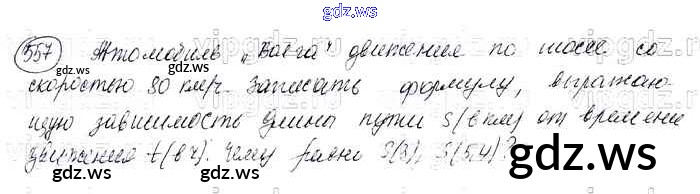 gdz.ws
557 Автомобиль „Волга" движения по шоссе со
скоростью 80 км/ч. Записать формулу, выражаю
щую зависимость длины пути S (в км) от времени
движения t (в ч). Чему равны S(3), S(5,4)?
gdz.ws gdz.ws gdz.ws
gdz.ws gdz.ws gdz.ws